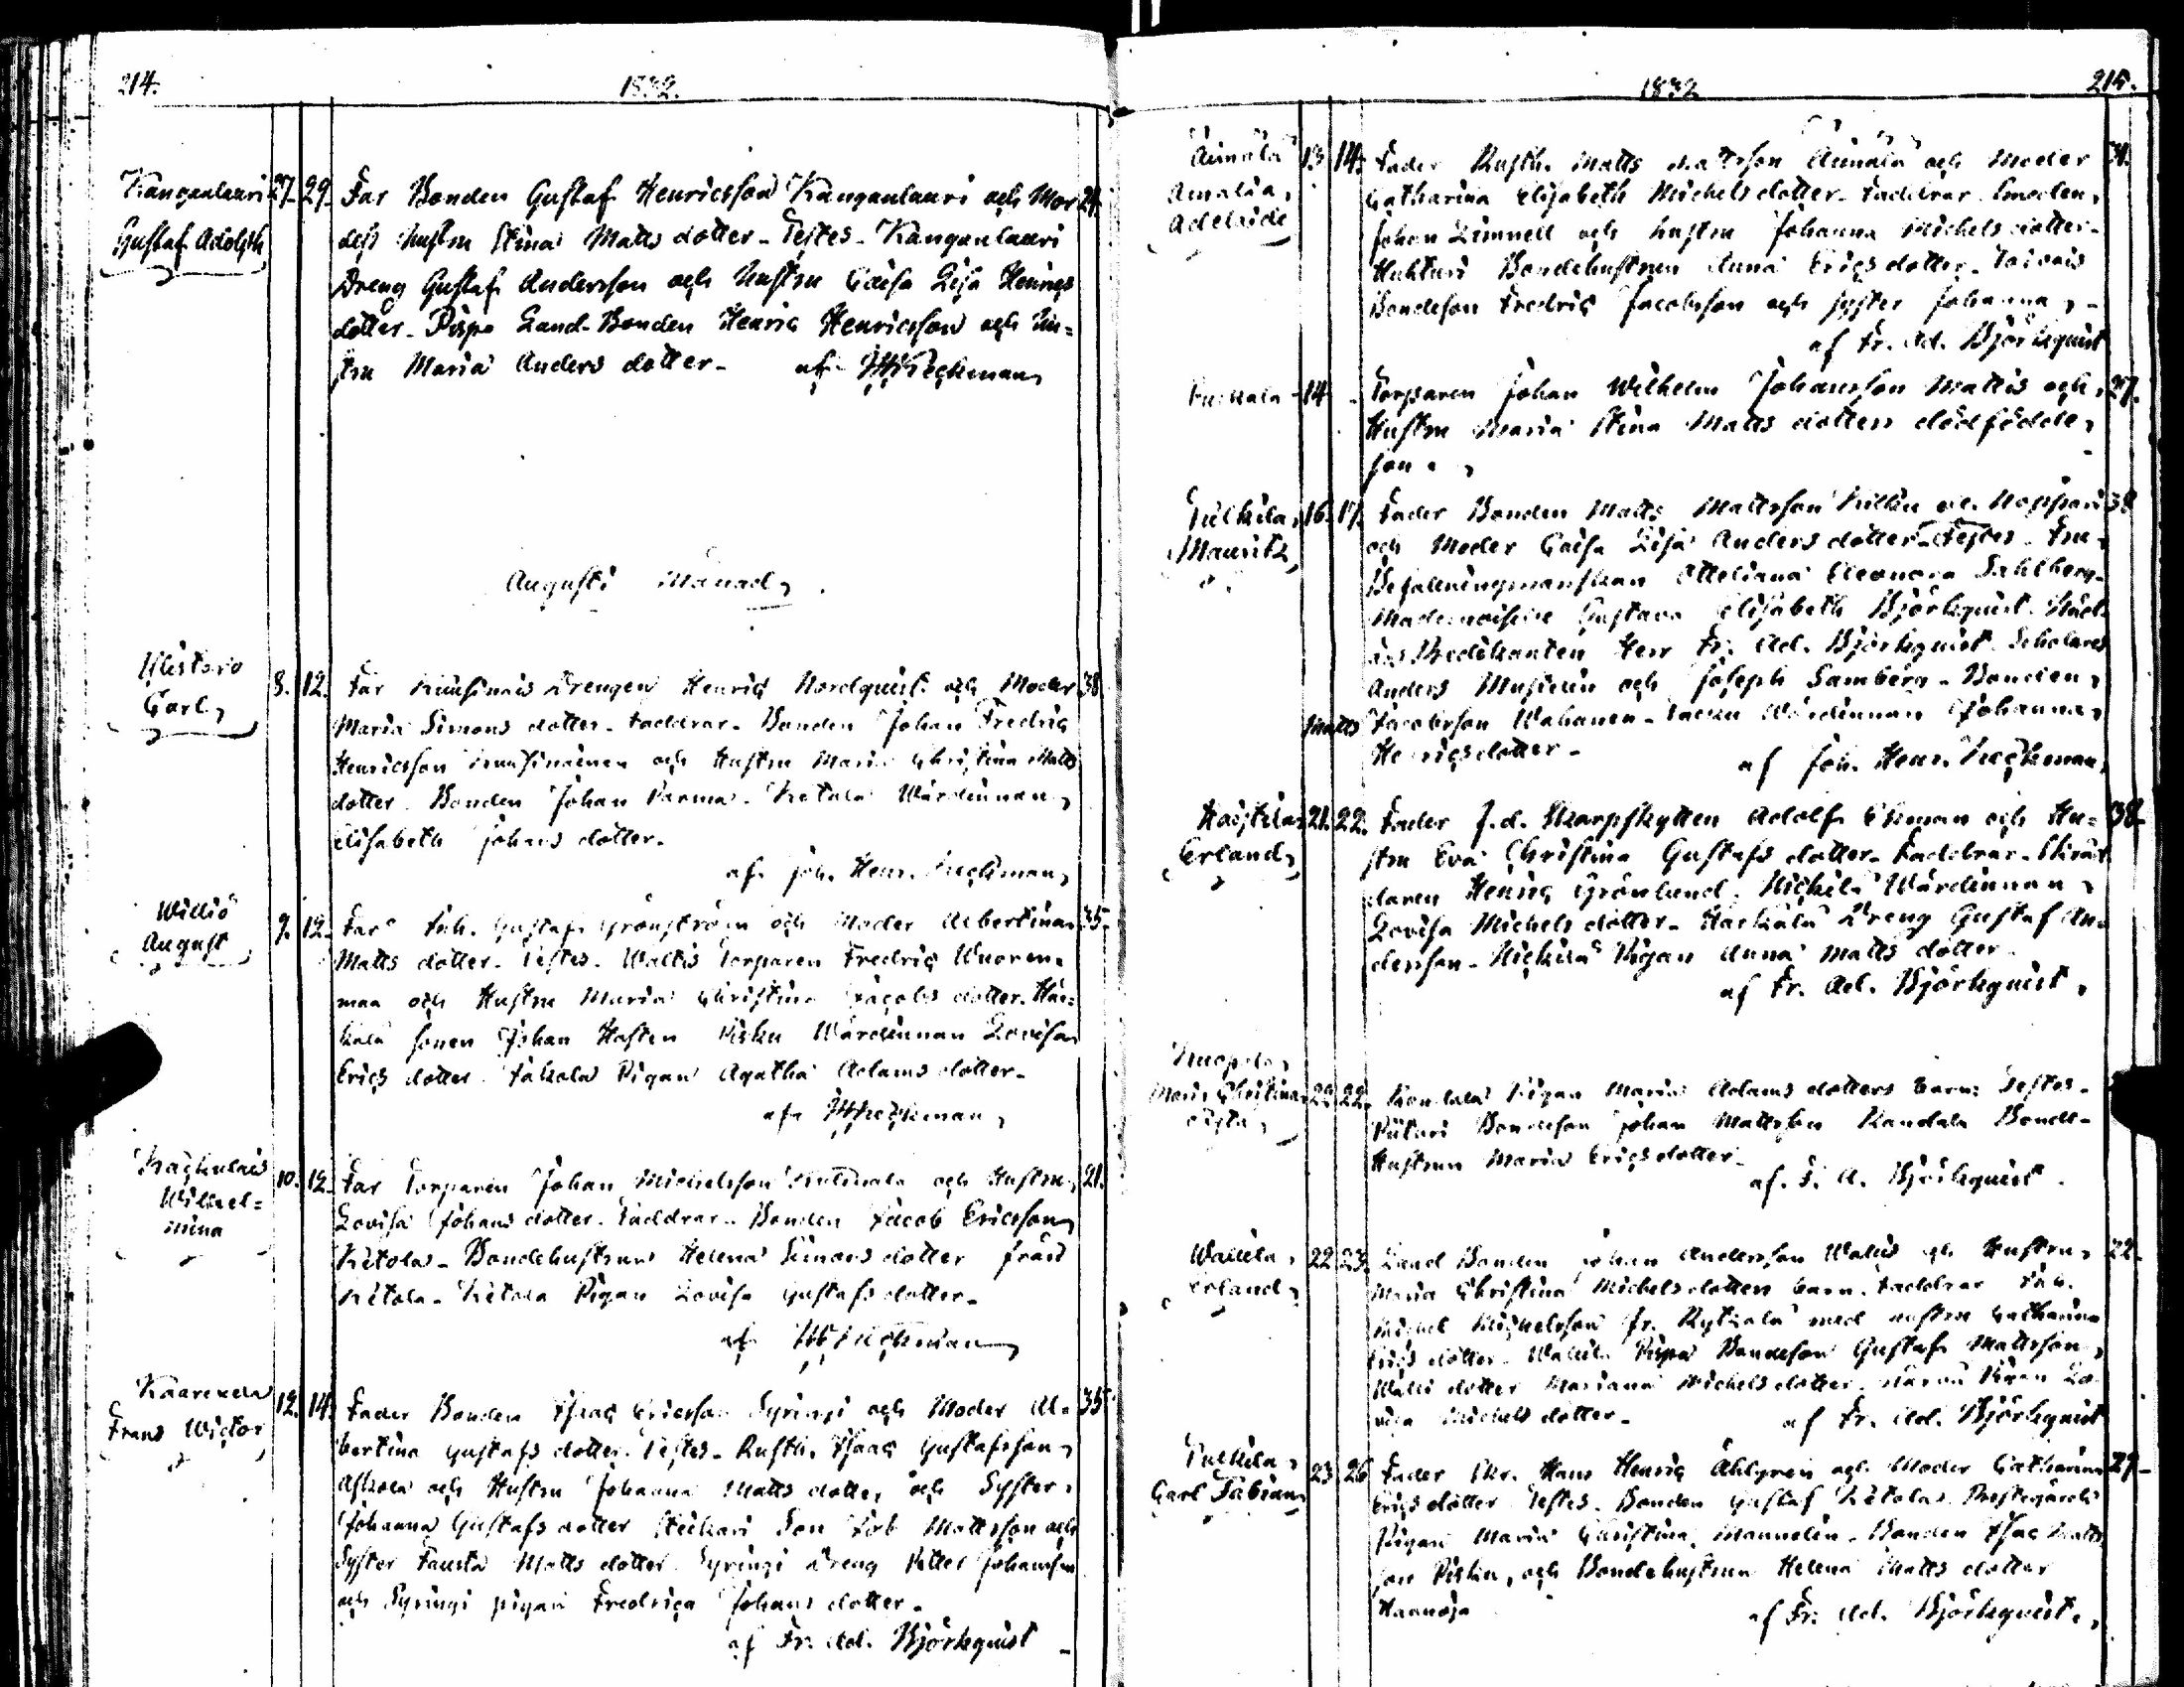 214.
1832.
Kanganlauri 27. 29. Far Bonden Gustaf Henricsson Kanganlauri och Mor 24.
Gustaf Adolph dess hustru Stina Matts dotter - Testes - Kanganlauri
Dreng Gustaf Andersson och hustru Caisa Lisa Henrics
dotter - Pispa Land-Bonden Henric Henricsson och hu=
stru Maria Anders dotter - af
Augusti Månad,
Carl, 8. 12. Far Drengen Henric Nordquist och Moder 38.
Maria Simons dotter - Faddrar - Bonden Johan Fredric
Henricsson och Hustru Maria Christina Matts
dotter. Bonden Johan Parma. Ketola Wärdinnan,
Elisabeth Johans dotter.
af Joh. Henr. Keckman,
Williö
August 9. 12. Far Gustaf Grönström och Moder Albertina 35.
Matts dotter - Testes - Torparen Fredric
och Hustru Maria Christina Jacobs dotter.
sonen Johan Wärdinnan Lovisa
Erics dotter. Pigan Agatha Adams dotter -
af
Wilhel=
mina 10. 12. Far Torparen Johan Michelsson och Hustru, 21.
Lovisa Johans dotter. Faddrar - Bonden Jacob Ericsson
Ketola - Bondehustrun Helena Simons dotter från
Ketola - Ketola Pigan Lovisa Gustafs dotter -
af
Frans Wictor 12. 14. Fader Bonden Isaac Ericsson Syringi och Moder Al- 35
bertina Gustafs dotter. Testes - Rusth. Isaac Gustafsson,
Askola och Hustru Johanna Matts dotter, och Syster,
Johanna Gustafs dotter Son Mattsson och
Syster Fausta Matts dotter Syringi Dreng Petter Johansson
och Syringi pigan Fredrica Johans dotter -
af Fr. Ad. Björkquist -
1832
215.
Äimälä 13 14. Fader Rusth. Matts Mattsson Äimälä och Moder 31.
Amalia,
Adelaide
Catharina Elisabeth Michels dotter - Faddrar - Smeden,
Johan Limnell och hustru Johanna Michels dotter -
Huhtari Bondehustrun Anna Erics dotter -
Bondeson Fredric Jacobsson och syster Johanna, -
af Fr. Ad. Björkquist
14 - Torparen Johan Wilhelm Johansson Mattis och, 27.
Hustru Maria Stina Matts dotters dödfödde,
son.
Mauritz 16. 17. Fader Bonden Matts Mattsson 38
och Moder Caisa Lisa Anders dotter - Testes - Fru,
Befallningsmanskan Otteliana Eleonora Sahlberg -
Mademoiselle Gustava Elisabeth Björkquist.
Predikanten Herr Fr. Ad. Björkquist. Scholares
Anders och Joseph Samberg - Bonden,
Matts Jacobsson Wahanen - Wärdinnan Johanna,
Henricsdotter -
af Joh. Henr. Keckman,
Erland, 21. 22. Fader f.d. Skarpskytten Adolf Ekman och Hu= 38
stru Eva Christina Gustafs dotter - Faddrar - Skräd
daren Henric Grönlund, Wärdinnan,
Lovisa Michels dotter - Dreng Gustaf An-
dersson - Pigan Anna Matts dotter -
af Fr. Ad. Björkquist,
Maria Christina 22 22. Pigan Maria Adams dotters barn: Testes -
Bondeson Johan Mattsson Kandala Bonde-
Hustrun Maria Ericsdotter -
af. F. A. Björkquist.
Erland, 22 23. Land Bonden Johan Andersson Wallis och Hustru, 22.
Maria Christina Michels dotters barn. Faddrar
Michel Michelsson fr. med hustru Catharina
Erics dotter - Pispa Bondeson Gustaf Mattsson,
dotter Mariana Michels dotter. Pigan Lo-
visa Michels dotter - af Fr. Ad. Björkquist
Carl Fabian, 23 26 Fader Hans Henric Ahlgren och Moder Catharina 29 -
Erics dotter Testes - Bonden Gustaf Ketola. Prestegårds
Pigan Maria Christina Mannelin - Bonden Isac Matts
son Pisku, och Bondehustrun Helena Matts dotter
af Fr. Ad. Björkquist,